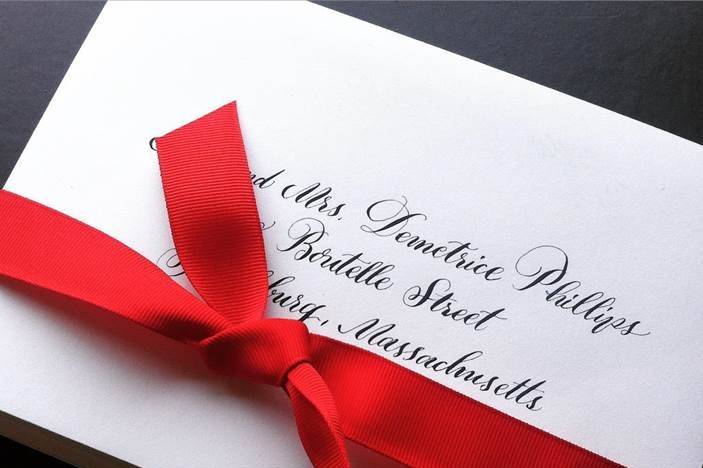 Mrs. Demetrice Phillips
Boutelle Street
Massachusetts